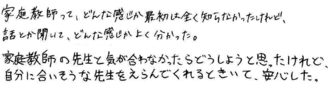 家庭教師って、どんな感じか最初は全く知らなかったけれど、
話とか聞いて、どんな感じかよく分かった。
家庭教師の先生と気が合わなかったらどうしようと思ったけれど、
自分に合いそうな先生をえらんでくれるときいて、安心した。